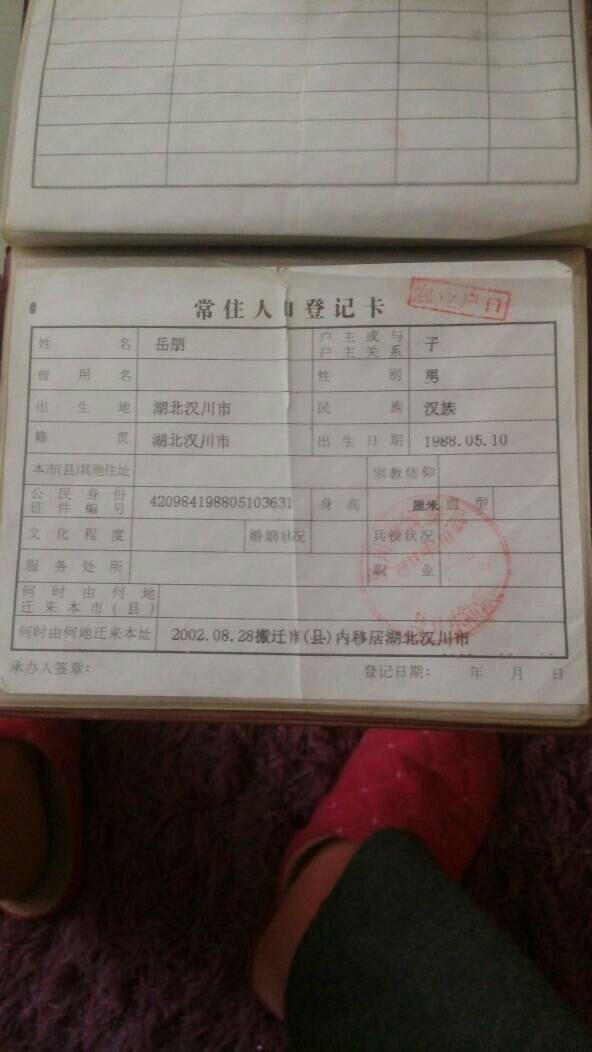 常住人口登记卡
姓名 岳朋 户主或与户主关系 子
曾用名 性别 男
出生地 湖北汉川市 民族 汉族
籍贯 湖北汉川市 出生日期 1988.05.10
本市(县)其他住址 宗教信仰
公民身份证件编号 420984198805103631 身高 厘米 血型
文化程度 婚姻状况 兵役状况
服务处所 职业
何时由何地迁来本市(县)
何时由何地迁来本址 2002.08.28搬迁市(县)内移居湖北汉川市
承办人签章: 登记日期: 年 月 日